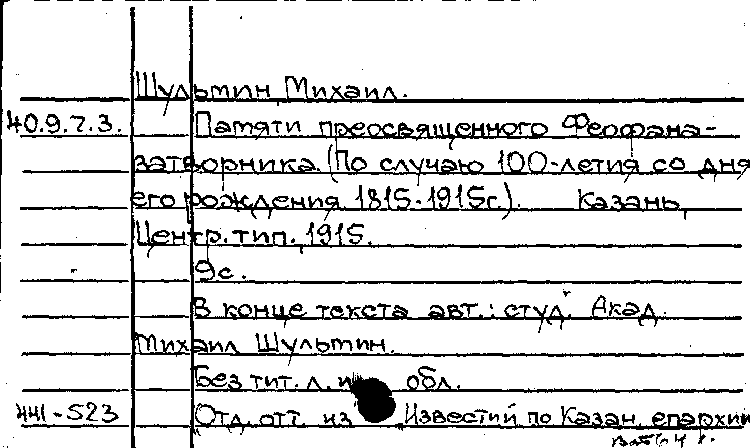 Шультин, Михаил.
40.9.7.3. Памяти преосвященного Феофана-
затворника. (По случаю 100-летия со дня
его рождения 1815-1915г.). Казань,
Центр. тип., 1915.
9с.
В конце текста авт.: студ. Акад.
Михаил Шультин.
Без тит. л. и обл.
441-523 Отд. отт. из Известий по Казан. епархии